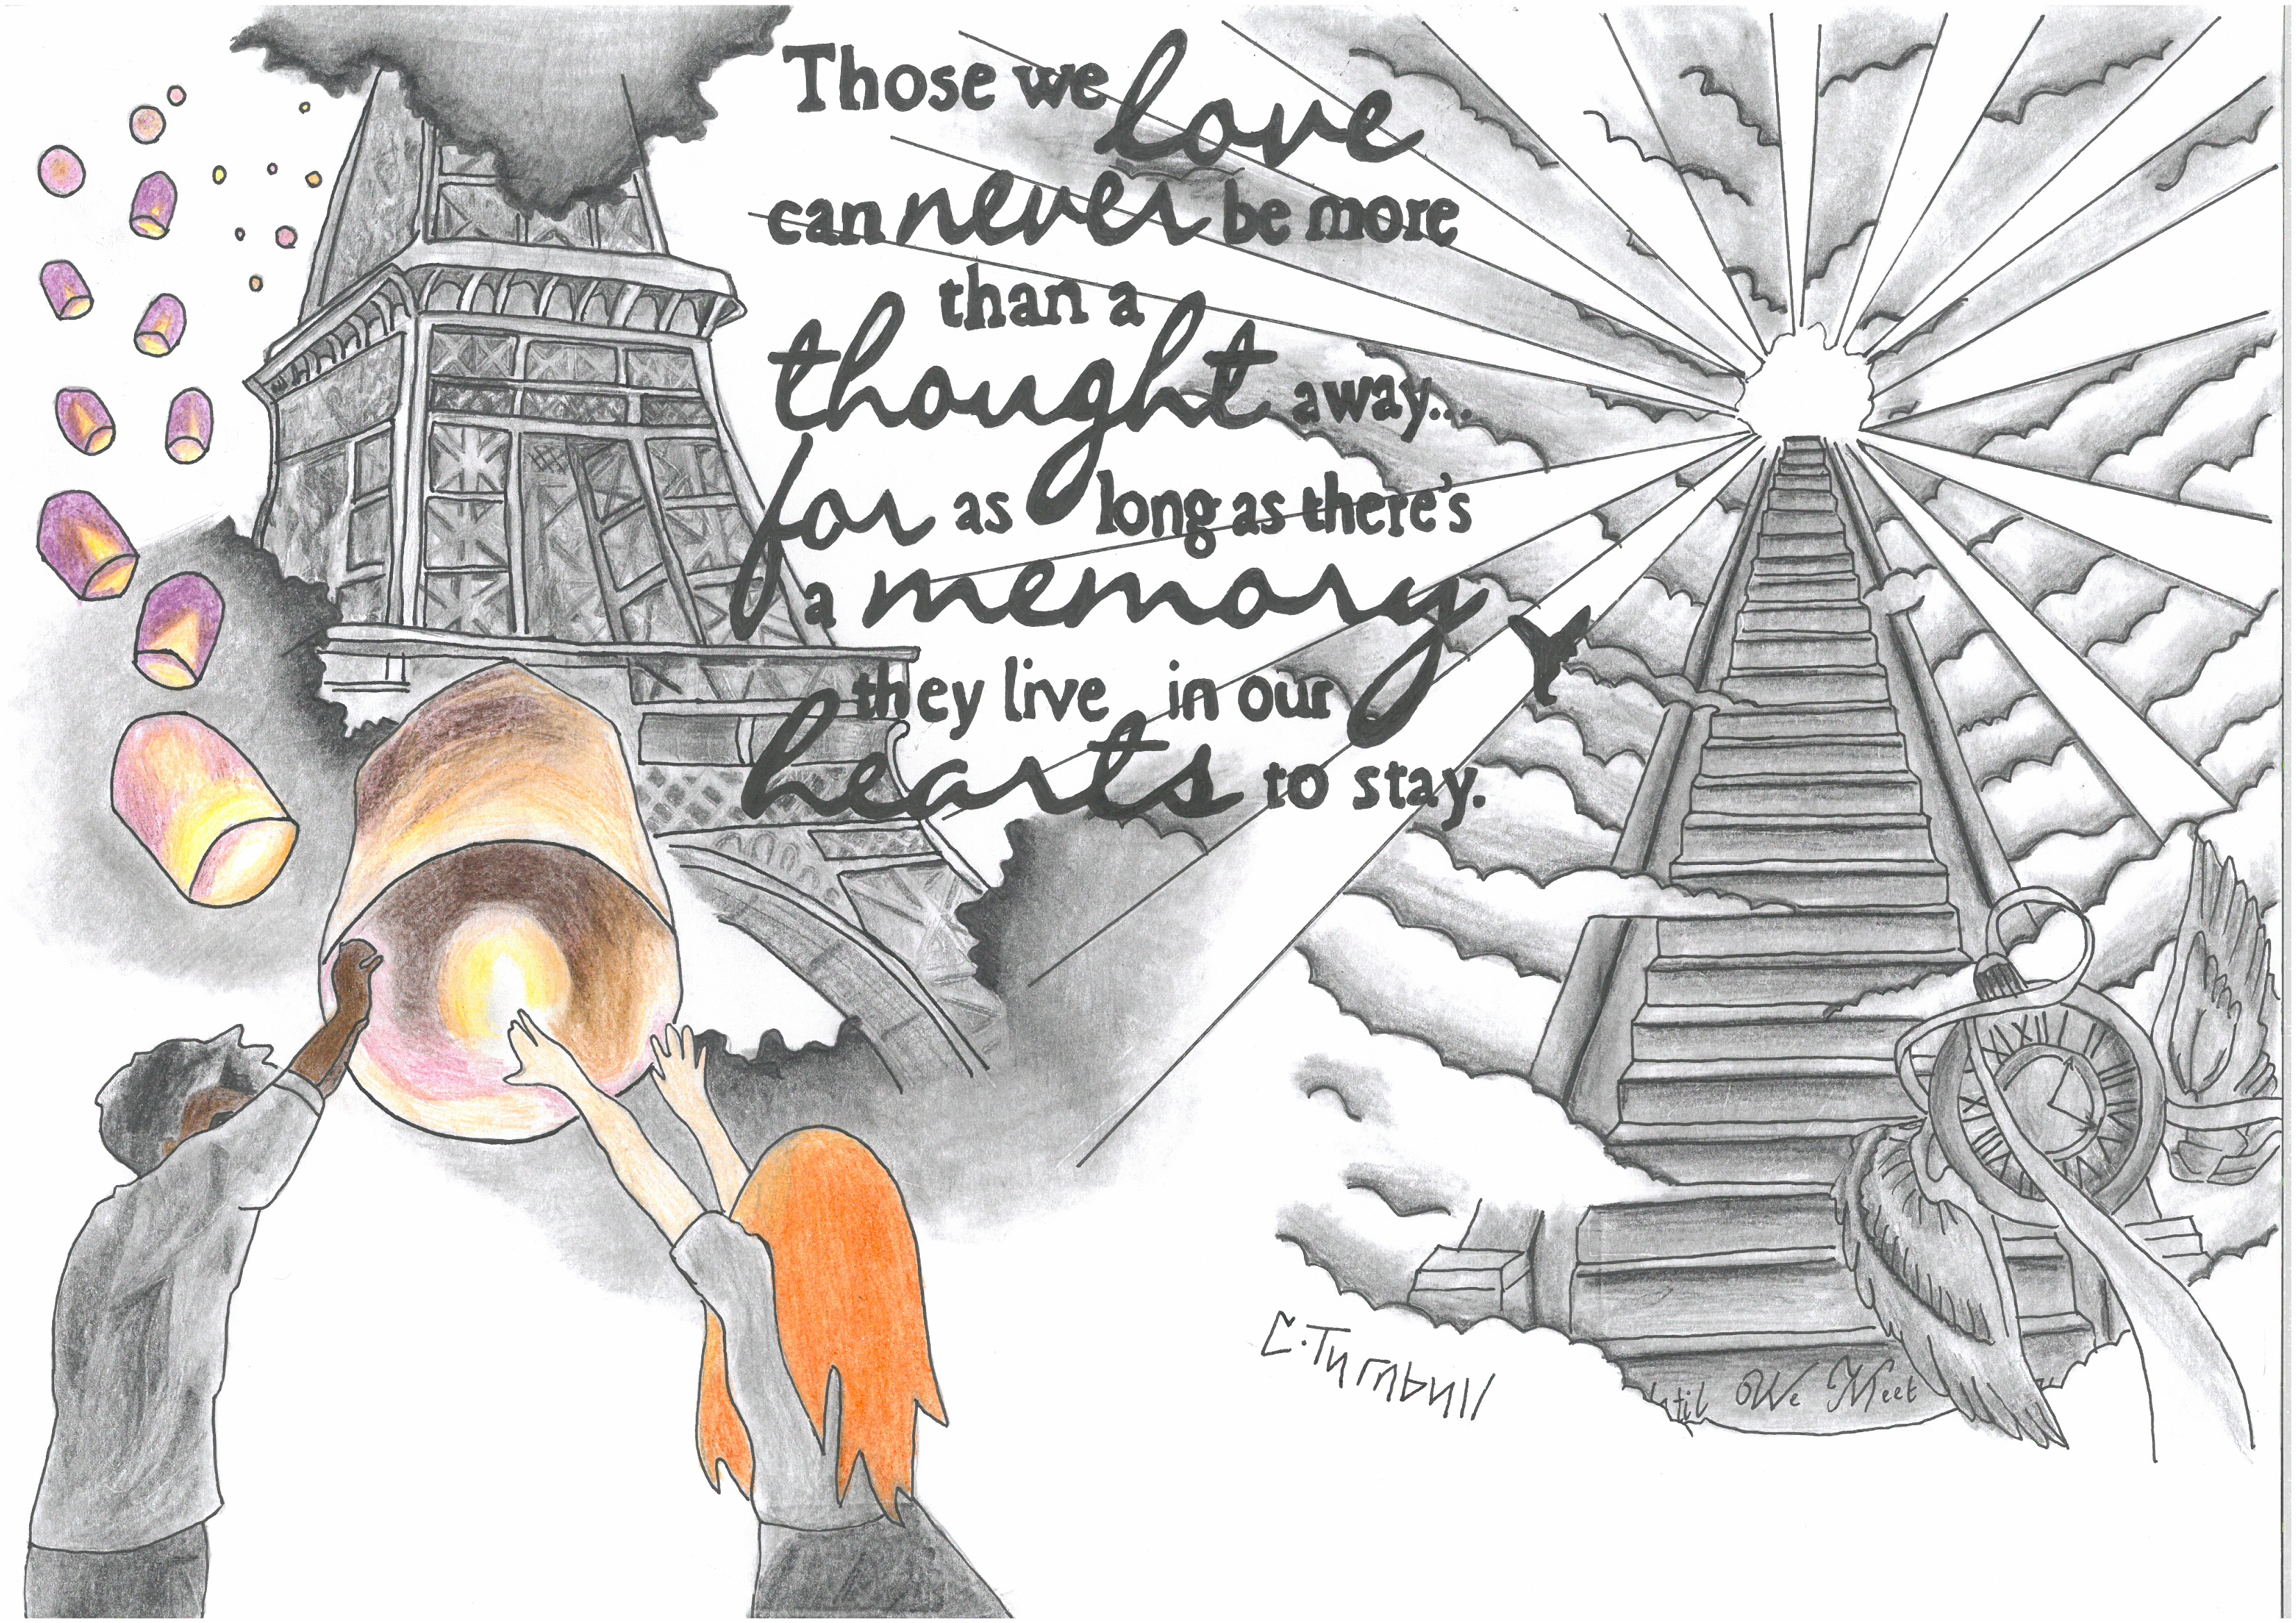 Those we love
can never be more
than a
thought away...
for as long as there's
a memory
they live in our
hearts to stay.
C.Turnbull
We Meet
XII